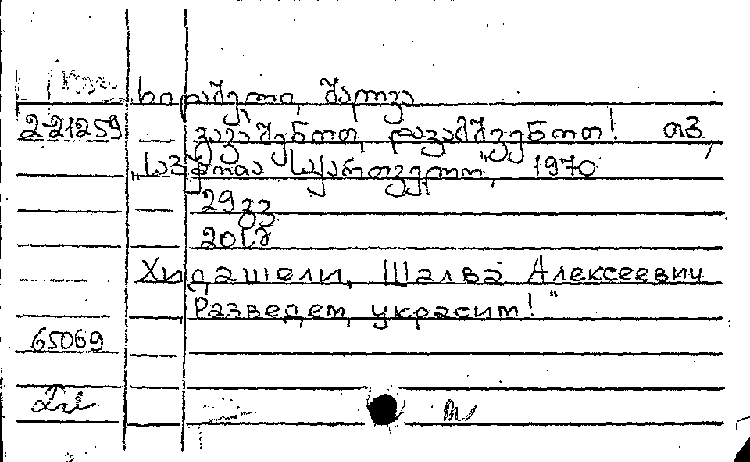 ხიდაშელი, შალვა
2-21259 გავაშენოთ, დავამშვენოთ! თბ,
„საბჭოთა საქართველო", 1970
29 გვ
20 სმ
Хидашели, Шалва Алексеевич
Разведем, украсит!"
65069